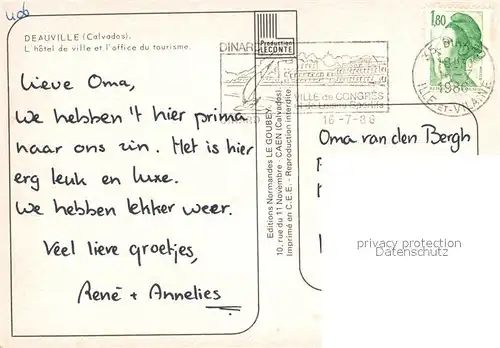 DEAUVILLE (Calvados).
L'hôtel de ville et l'office du tourisme.
Lieve Oma,
We hebben 't hier prima
naar ons zin. Het is hier
erg leuk en luxe.
We hebben lekker weer.
Veel lieve groetjes,
René + Annelies
Production
LECONTE
Editions Normandes LE GOUBEY
10, rue du 11 Novembre - CAEN (Calvados)
Imprimé en C.E.E. - Reproduction interdite.
DINARD
VILLE de CONGRÈS
16-7-86
1,80
1986
ILLE-et-VILAINE
Oma van den Bergh
privacy protection
Datenschutz